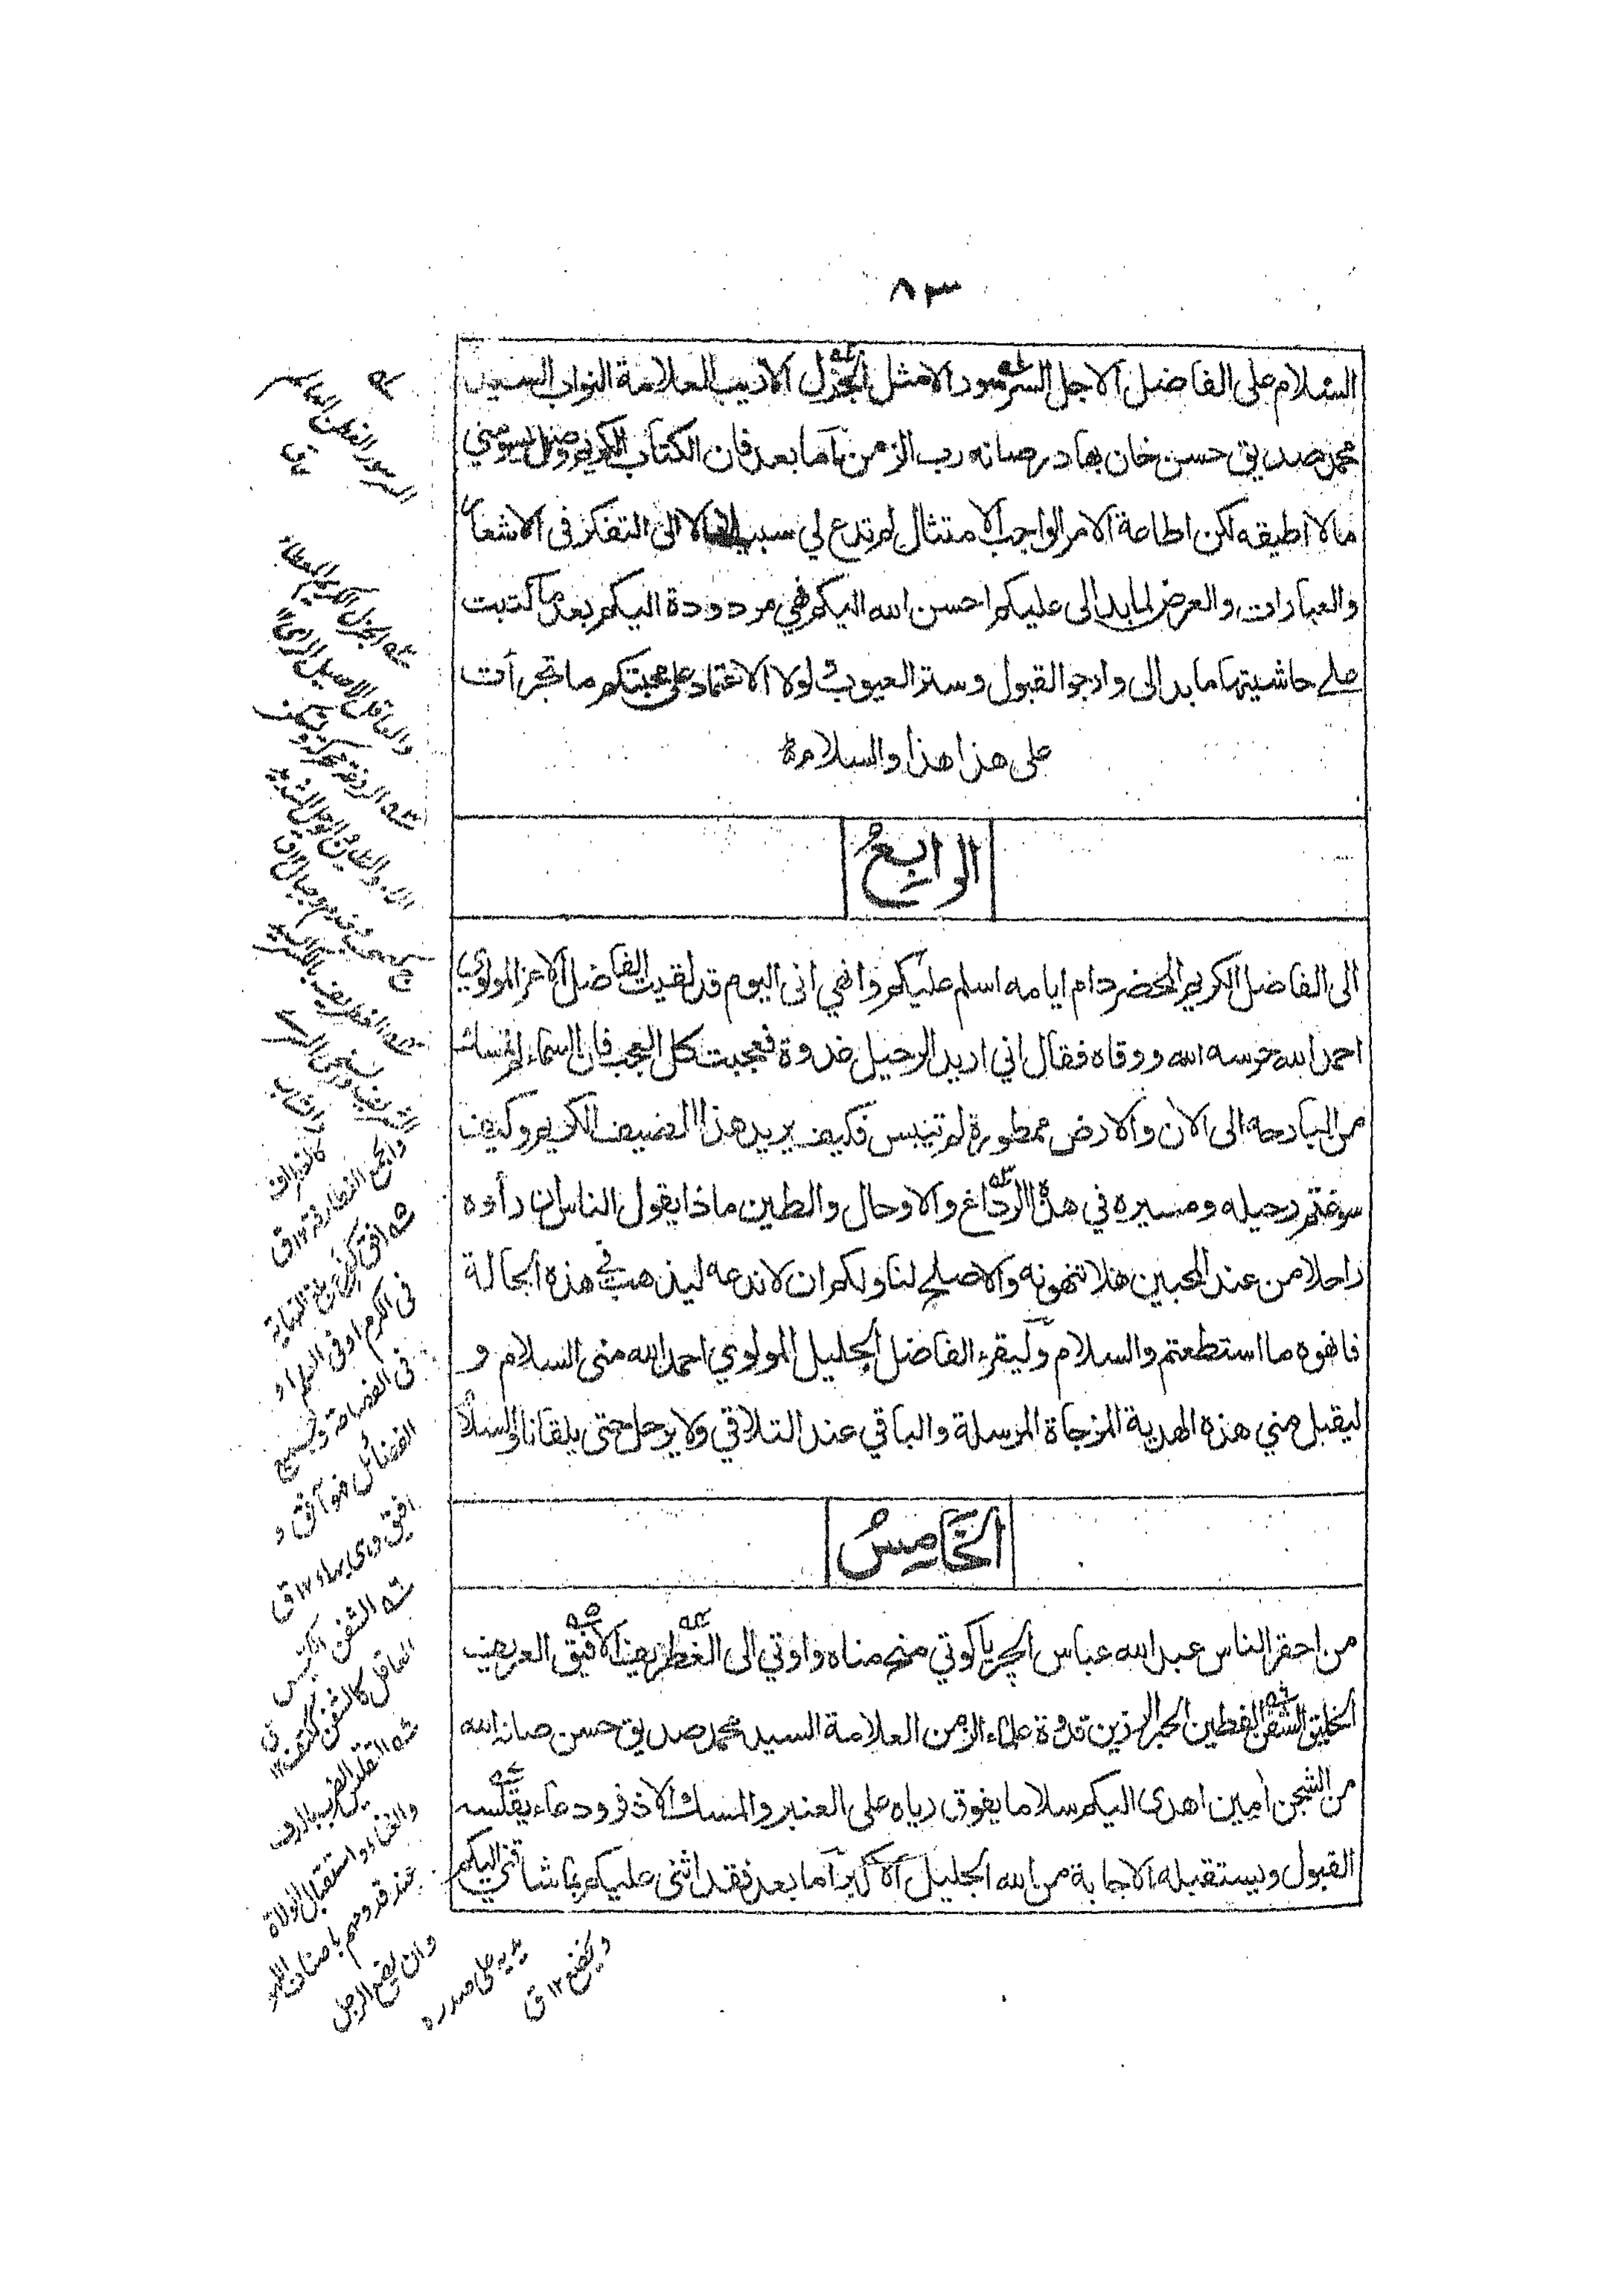 ٨٣
السلام على الفاضل الاجل السرسود الامثل الجزل الاديب العلامة النواب السيد
محمد صديق حسن خان بهادر صانه رب الزمن اما بعد فان الكتاب الكريم وصل يسومني
ما لا اطيقه لكن اطاعة الامر الواجب الامتثال لم تدع لي سبيلا الا الى التفكر فى الاشعار
والعبارات والعرض لما بدا لى عليكم احسن الله اليكم فهي مردودة اليكم بعد ما كتبت
على حاشيتها ما بدا لى وارجو القبول وستر العيوب لولا الاعتماد على محبتكم ما تجرأت
على هذا هذا والسلام
الرابع
الى الفاضل الكريم المخضر دام ايامه اسلم عليكم وانهي انى اليوم قد لقيت الفاضل الاعز المولوي
احمد الله حرسه الله ووقاه فقال اني اريد الرحيل غدوة فعجبت كل العجب فان السماء لم تمسك
من البارحه الى الان والارض ممطورة لم تيبس فكيف يريد هذا الضيف الكريم وكيف
سوغتم رحيله ومسيره في هذه الرداغ والاوحال والطين ماذا يقول الناس ان رأوه
راحلا من عند المحبين هلا تنهونه والاصلح لنا ولكم ان لا ندعه ليذهب في هذه الحالة
فانهوه ما استطعتم والسلام وليقرء الفاضل الجليل المولوي احمد الله منى السلام و
ليقبل مني هذه الهدية المزجاة المرسلة والباقي عند التلاقي ولا يرحل حتى يلقانا والسلام
الخامس
من احقر الناس عبد الله عباس الچرياكوتي منح مناه واوتي الى الغطريف الافيق العريف
الخليق الشفن الفطين الحبر الرزين قدوة علماء الزمن العلامة السيد محمد صديق حسن صانه الله
من الشجن امين اهدى اليكم سلاما يفوق رياه على العنبر والمسك الاذفر ودعاء يقلسه
القبول ويستقبله الاجابة من الله الجليل الاكبر اما بعد فقد اثنى عليكم بما شاقني اليكم
والجمع الغطارفة ١٢ ق
فى الكرم او فى العلم او
فى الفصاحة وجميع
الفضائل فهو آفق و
افيق وهى بهاء ١٢ ق
الشفن الكيس
العاقل كالشفن ككتف ١٢
التقليس الضرب بالدف
والغناء واستقبال الولاة
عند قدومهم باصناف اللهو
وان يضع الرجل
يديه على صدره
ويخضع ١٢ ق